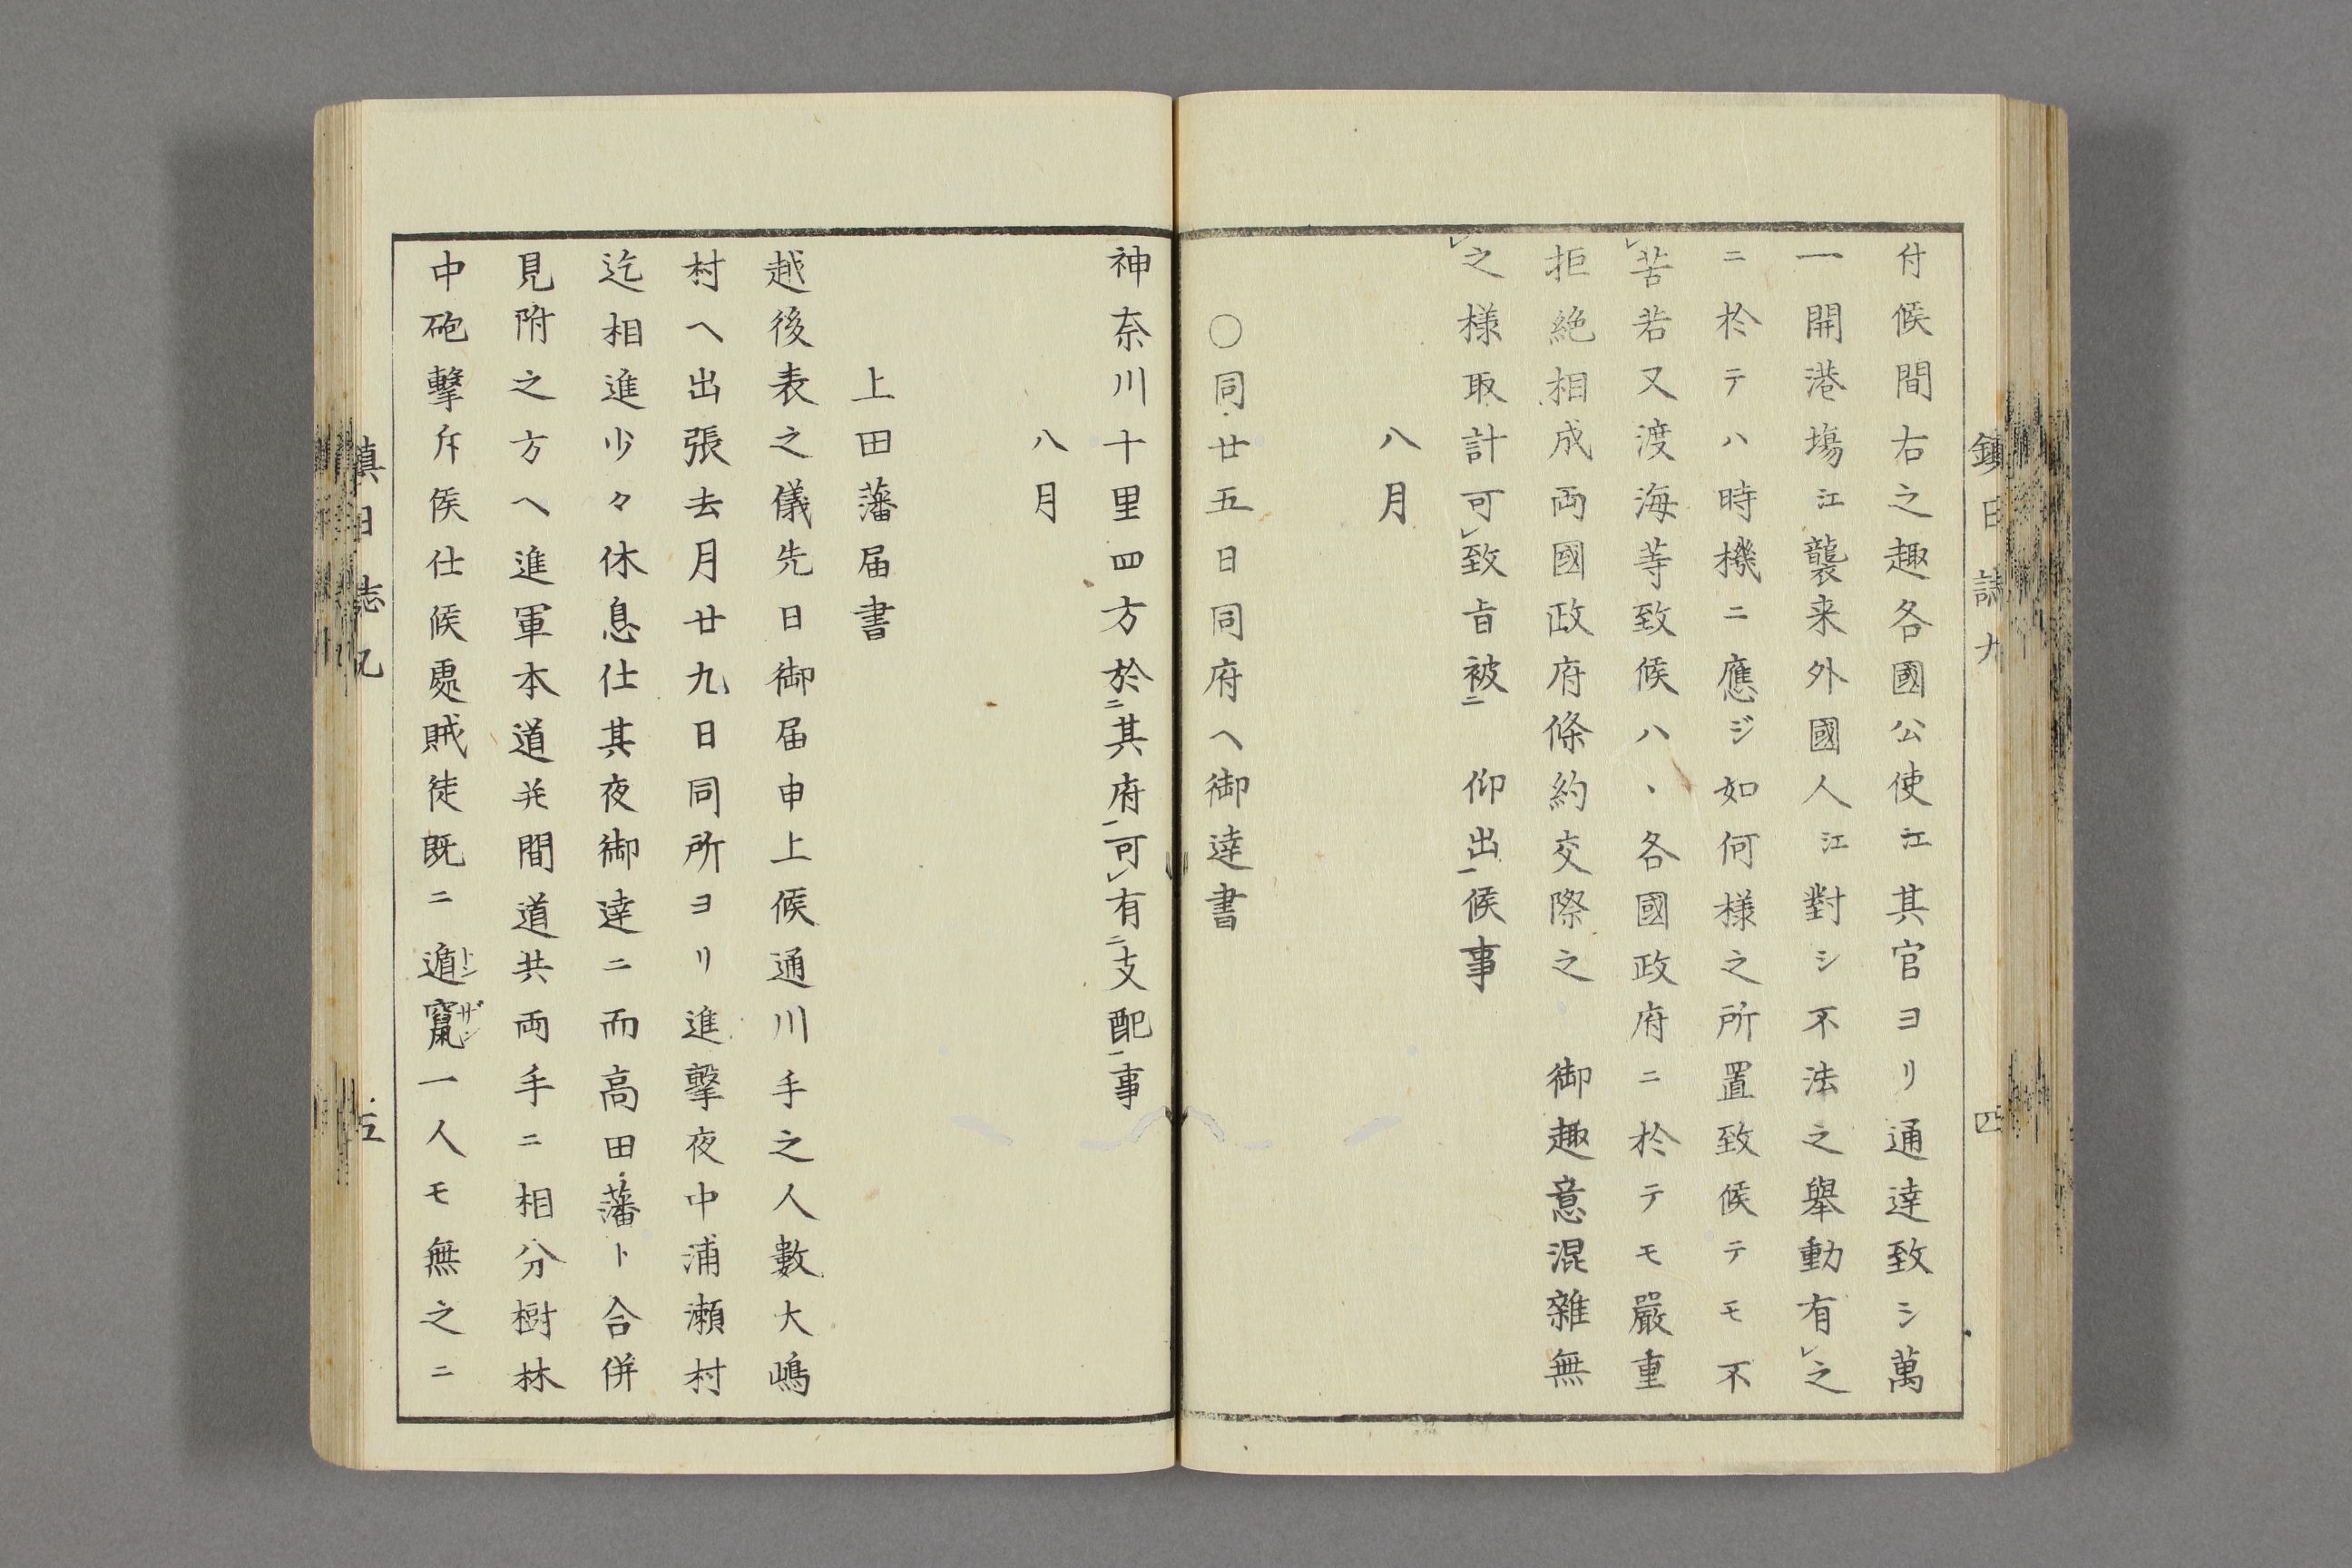 鎮日誌九
四
付候間右之趣各國公使江其官ヨリ通達致シ萬
一開港塲江襲来外國人江對シ不法之舉動有㆑之
ニ於テハ時機ニ應ジ如何様之所置致候テモ不
㆑苦若又渡海等致候ハヽ各國政府ニ於テモ嚴重
拒絶相成両國政府條約交際之　御趣意混雜無
㆑之様取計可㆑致旨被㆓　仰出㆒候事
八月
〇同廿五日同府ヘ御達書
神奈川十里四方於㆓其府㆒可㆑有㆓支配㆒事
八月
上田藩届書
越後表之儀先日御届申上候通川手之人數大嶋
村ヘ出張去月廿九日同所ヨリ進擊夜中浦瀬村
迄相進少々休息仕其夜御達ニ而高田藩ト合併
見附之方ヘ進軍本道并間道共両手ニ相分樹林
中砲擊斥侯仕候處賊徒既ニ遁竄一人モ無之ニ
トン
ザン
鎮日誌九
五